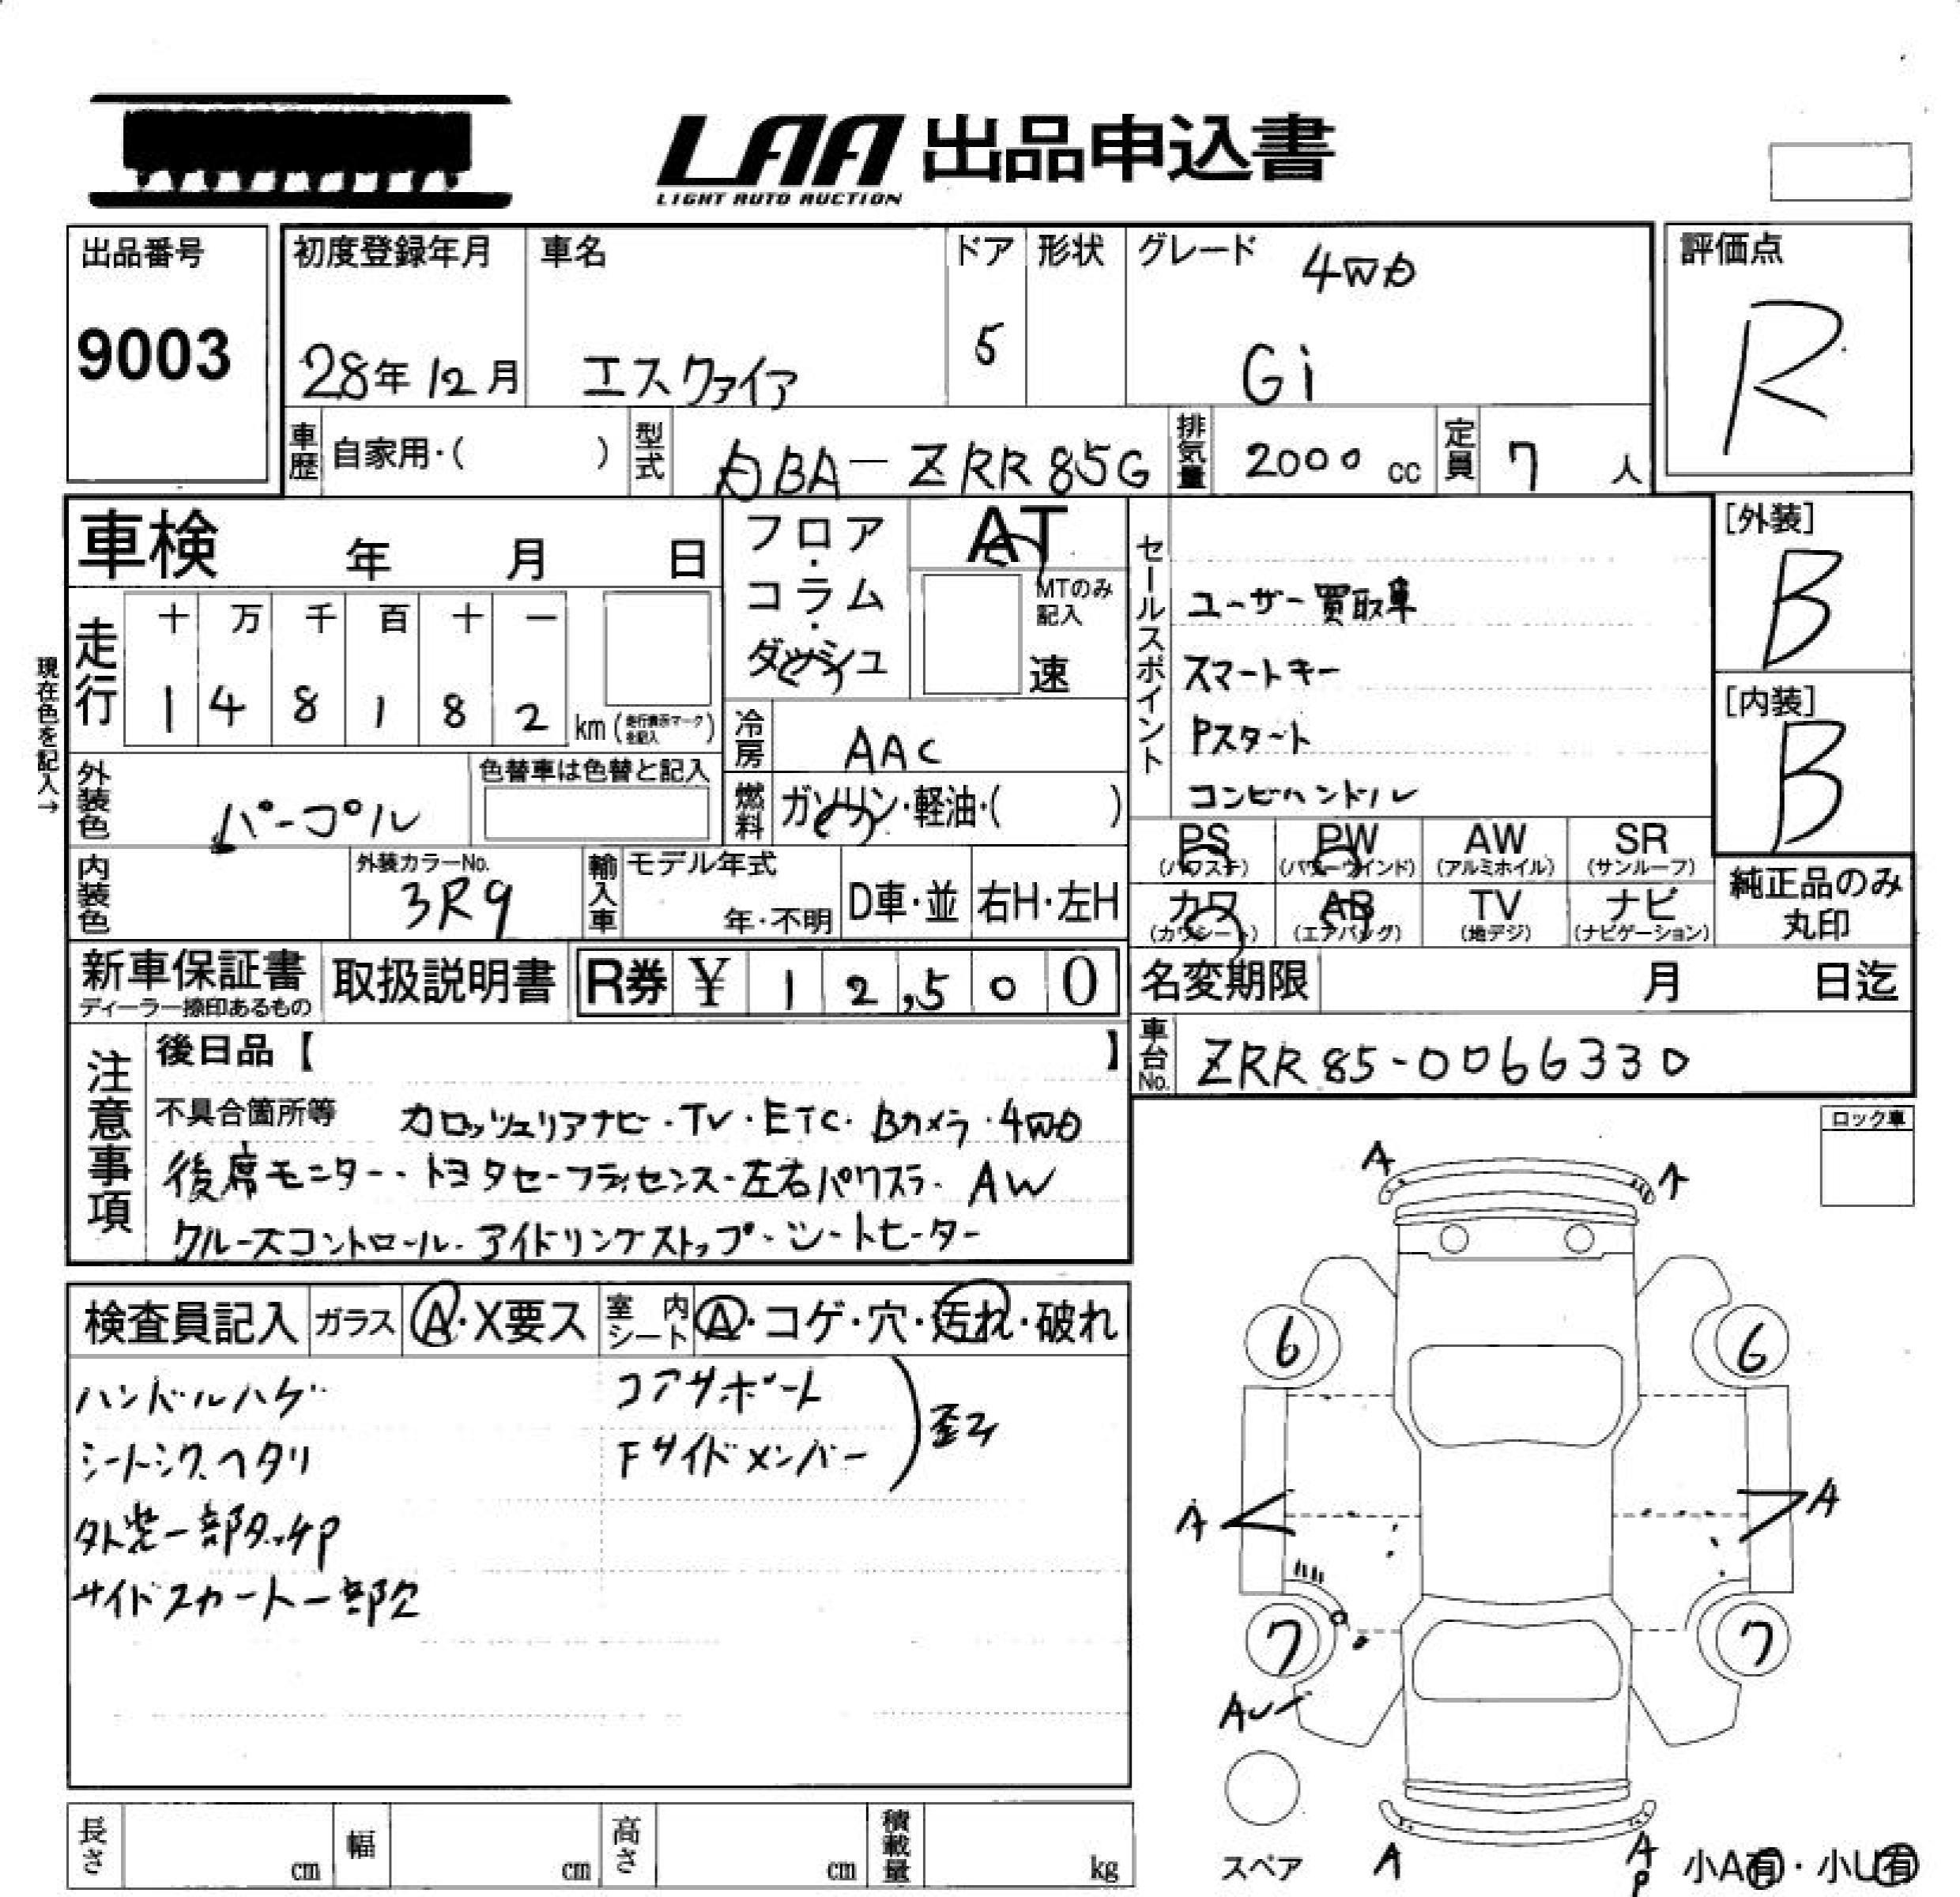 LAA 出品申込書
LIGHT AUTO AUCTION
出品番号
9003
初度登録年月
28年12月
車名
エスクァイア
ドア
5
形状
グレード
4WD
Gi
評価点
R
車歴
自家用・( )
型式
DBA-ZRR85G
排気量
2000 cc
定員
7 人
車検 年 月 日
フロア・コラム・ダッシュ
AT
MTのみ記入
速
セールスポイント
ユーザー買取車
スマートキー
Pスタート
コンビハンドル
[外装]
B
[内装]
B
現在色を記入→
走行
十 万 千 百 十 一
1 4 8 1 8 2
km(走行表示マークを記入)
冷房
AAC
外装色
パープル
色替車は色替と記入
燃料
ガソリン・軽油・( )
PS (パワステ)
PW (パワーウインド)
AW (アルミホイル)
SR (サンルーフ)
カワ (カワシート)
AB (エアバッグ)
TV (地デジ)
ナビ (ナビゲーション)
純正品のみ丸印
内装色
外装カラーNo.
3R9
輸入車
モデル年式
年・不明
D車・並
右H・左H
新車保証書
ディーラー捺印あるもの
取扱説明書
R券 ¥ 12,500
名変期限 月 日迄
車台No.
ZRR85-0066330
注意事項
後日品【 】
不具合箇所等 カロッツェリアナビ・TV・ETC・Bカメラ・4WD
後席モニター・トヨタセーフティセンス・左右パワスラ・AW
クルーズコントロール・アイドリングストップ・シートヒーター
ロック車
検査員記入
ガラス
A・X要ス
室内シート
A・コゲ・穴・汚れ・破れ
ハンドルハゲ
シートシワ、ヘタリ
外装一部タッチP
サイドスカート一部欠
コアサポート
Fサイドメンバー
歪み
A
A
6
6
A
A
7
7
AU
スペア
A
A
P
小A有・小U有
長さ cm
幅 cm
高さ cm
積載量 kg